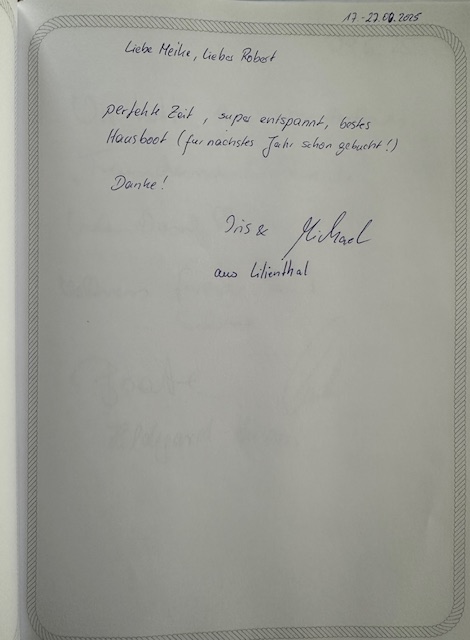 17.-27.09.2025
Liebe Meike, Lieber Robert
perfekte Zeit, super entspannt, bestes
Hausboot (für nächstes Jahr schon gebucht!)
Danke!
Iris & Michael
aus Lilienthal